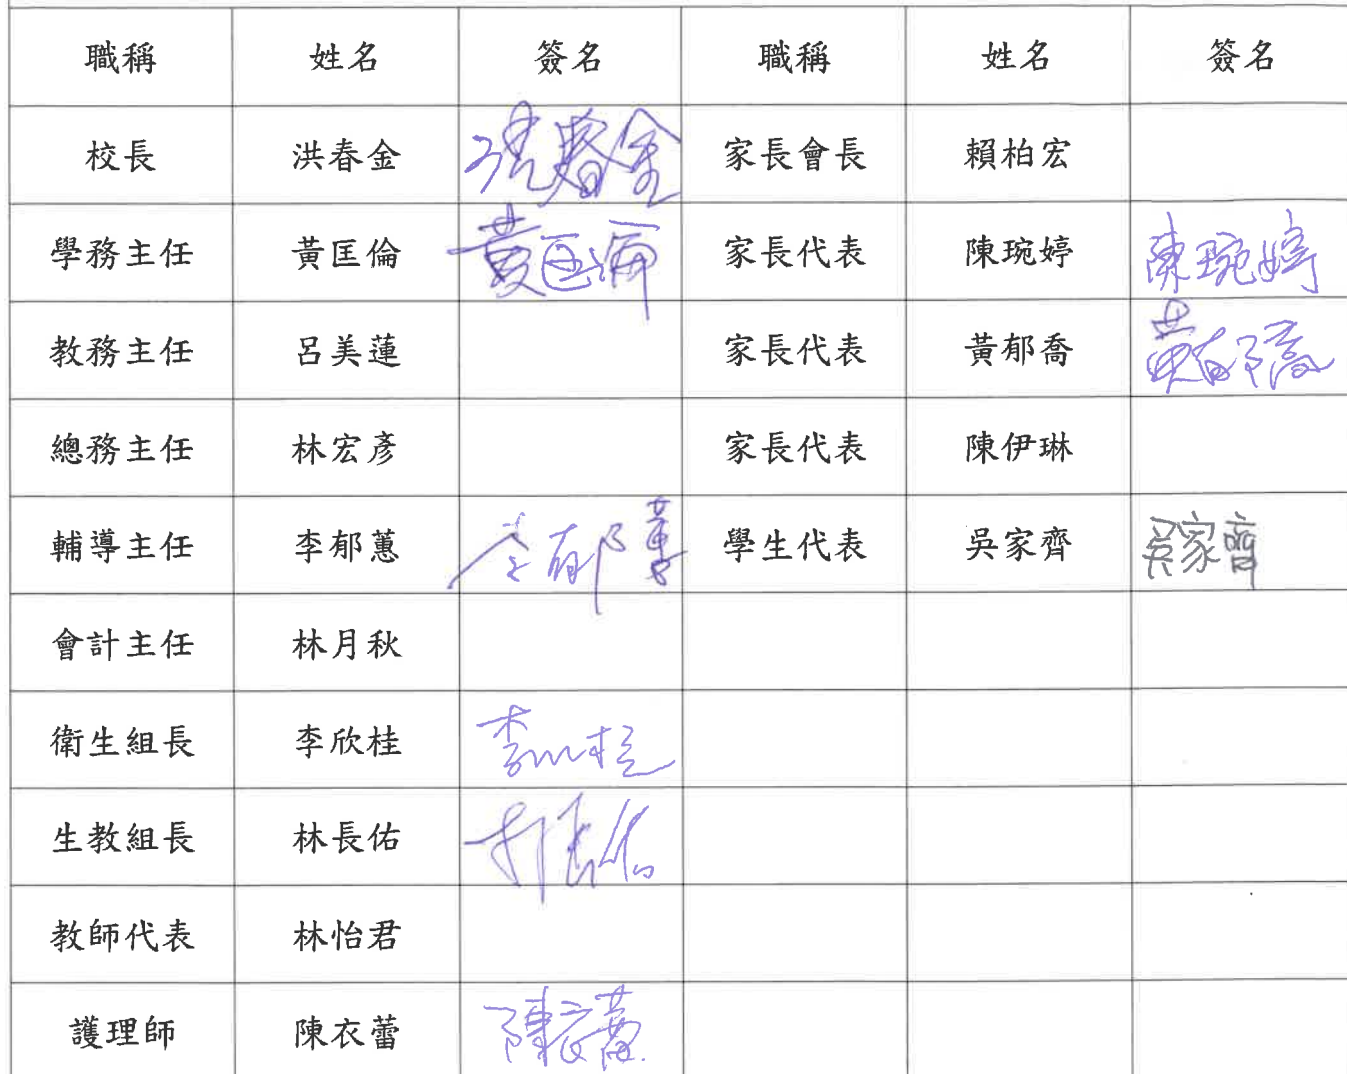 職稱 姓名 簽名 職稱 姓名 簽名
校長 洪春金 洪春金 家長會長 賴柏宏
學務主任 黃匡倫 黃匡倫 家長代表 陳琬婷 陳琬婷
教務主任 呂美蓮 家長代表 黃郁喬 黃郁喬
總務主任 林宏彥 家長代表 陳伊琳
輔導主任 李郁蕙 李郁蕙 學生代表 吳家齊 吳家齊
會計主任 林月秋
衛生組長 李欣桂 李欣桂
生教組長 林長佑 林長佑
教師代表 林怡君
護理師 陳衣蕾 陳衣蕾